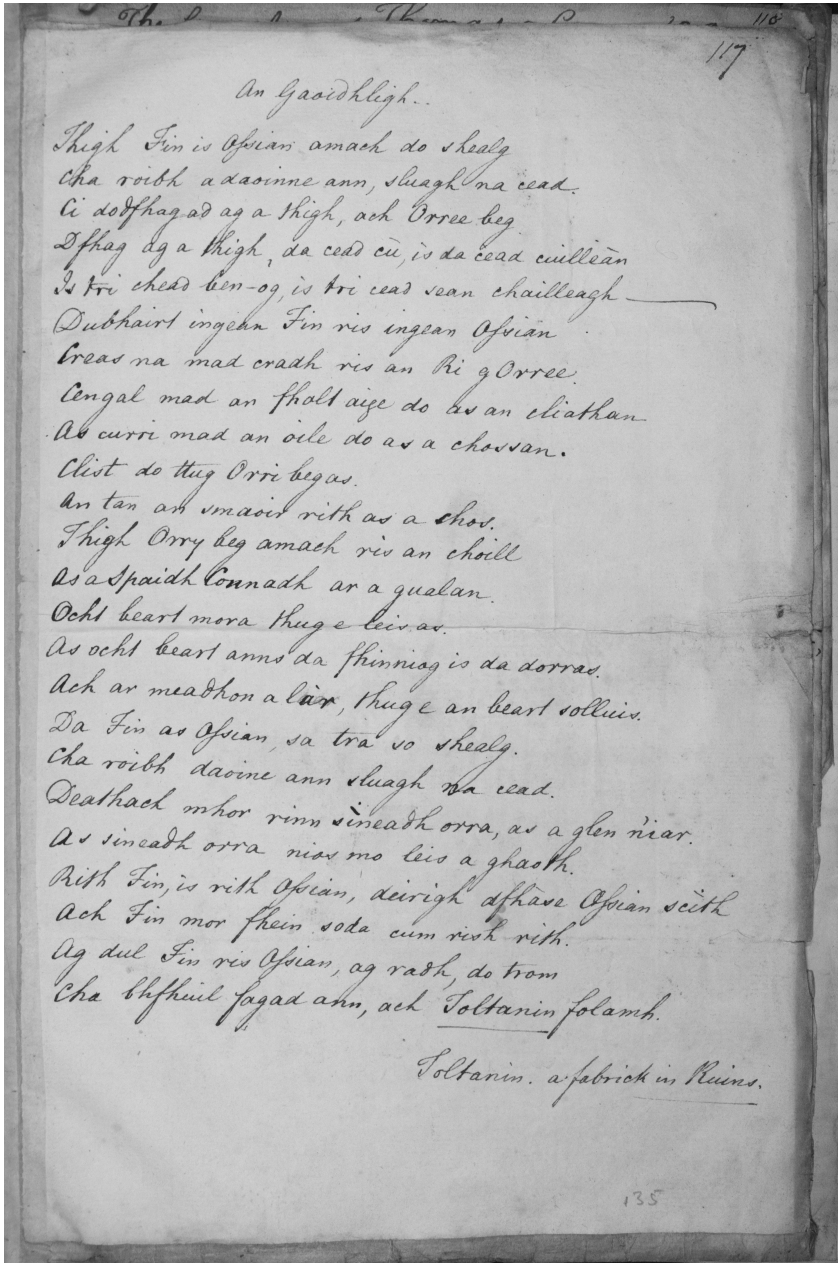 116
117
An Gaoidhligh..
Thigh Fin is Ossian amach do shealg
Cha roibh a daoinne ann, sluagh na cead.
Ci dodfhagad ag a thigh, ach Orree beg
Dfhag ag a thigh, da cead cū, is da cead cuilleān
Is tri chead ben-og, is tri cead sean chailleagh —
Dubhairt ingean Fin ris ingean Ossian
Creas na mad cradh ris an Ri g Orree.
Cengal mad an fholt aige do as an cliathan
As curri mad an oile do as a chossan.
Clist do ttug Orri beg as.
An tan an smaoir rith as a chos.
Thigh Orry beg amach ris an choill
As a Spaidh Connadh ar a gualan.
Ocht beart mora thug e leis as.
As ocht beart anns da fhinniog is da dorras.
Ach ar meadhon a làr, thug e an beart solluis.
Da Fin as Ossian, sa tra so shealg.
Cha roibh daoine ann sluagh na cead.
Deathach mhor rinn sìneadh orra, as a glen niar.
As sineadh orra nios mo leis a ghaoth.
Rith Fin, is rith Ossian, deirigh dfhāse Ossian scìth
Ach Fin mor fhein soda cum rish rith.
Ag dul Fin ris Ossian, ag radh, do trom
Cha bhfheuil fagad ann, ach Toltanin folamh.
Toltanin. a fabrick in Ruins.
135